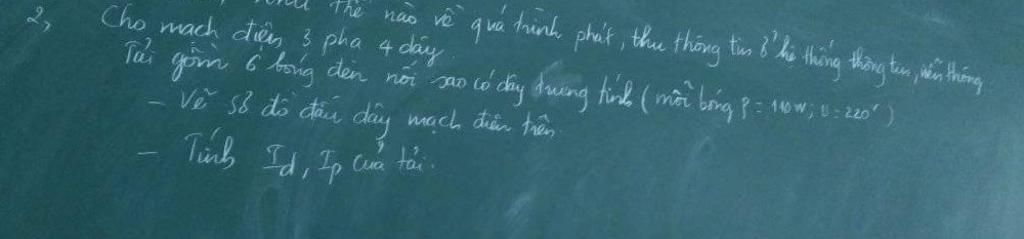 thế nào về quá trình phát, thu thông tin ở hệ thống thông tin, viễn thông
2, Cho mạch điện 3 pha 4 dây
Tải gồm 6 bóng đèn nối sao có dây trung tính (mỗi bóng P = 110W; U = 220V)
- Vẽ sơ đồ đấu dây mạch điện trên.
- Tính Id, Ip của tải.